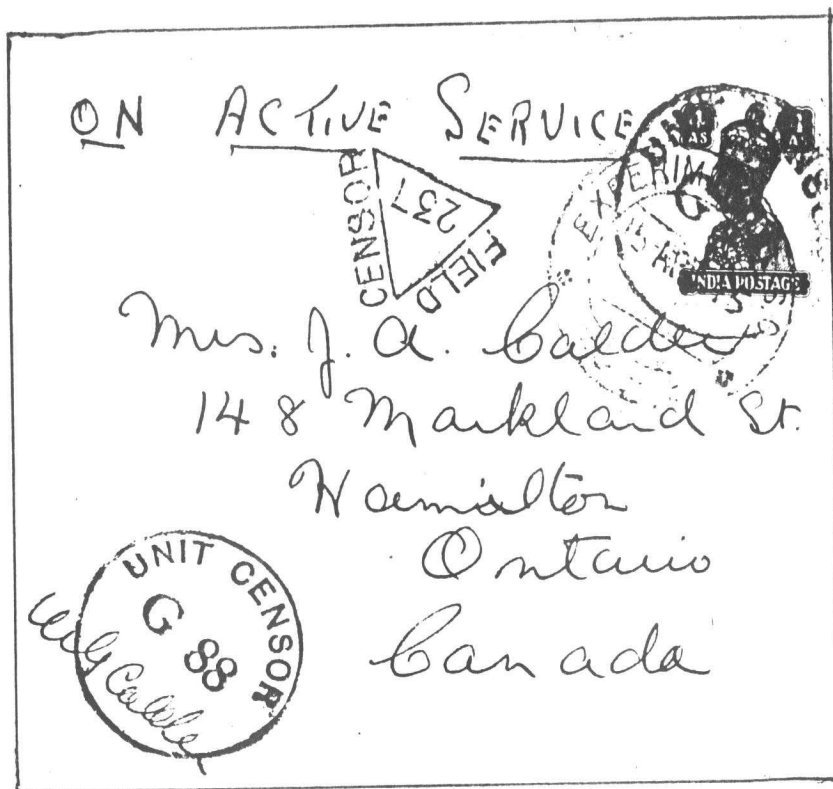 ON ACTIVE SERVICE
FIELD
CENSOR
237
AS
EXPERIM
15 AP
INDIA POSTAGE
Mrs. J. A. Calder
148 Markland St.
Hamilton
Ontario
Canada
UNIT CENSOR
G 88